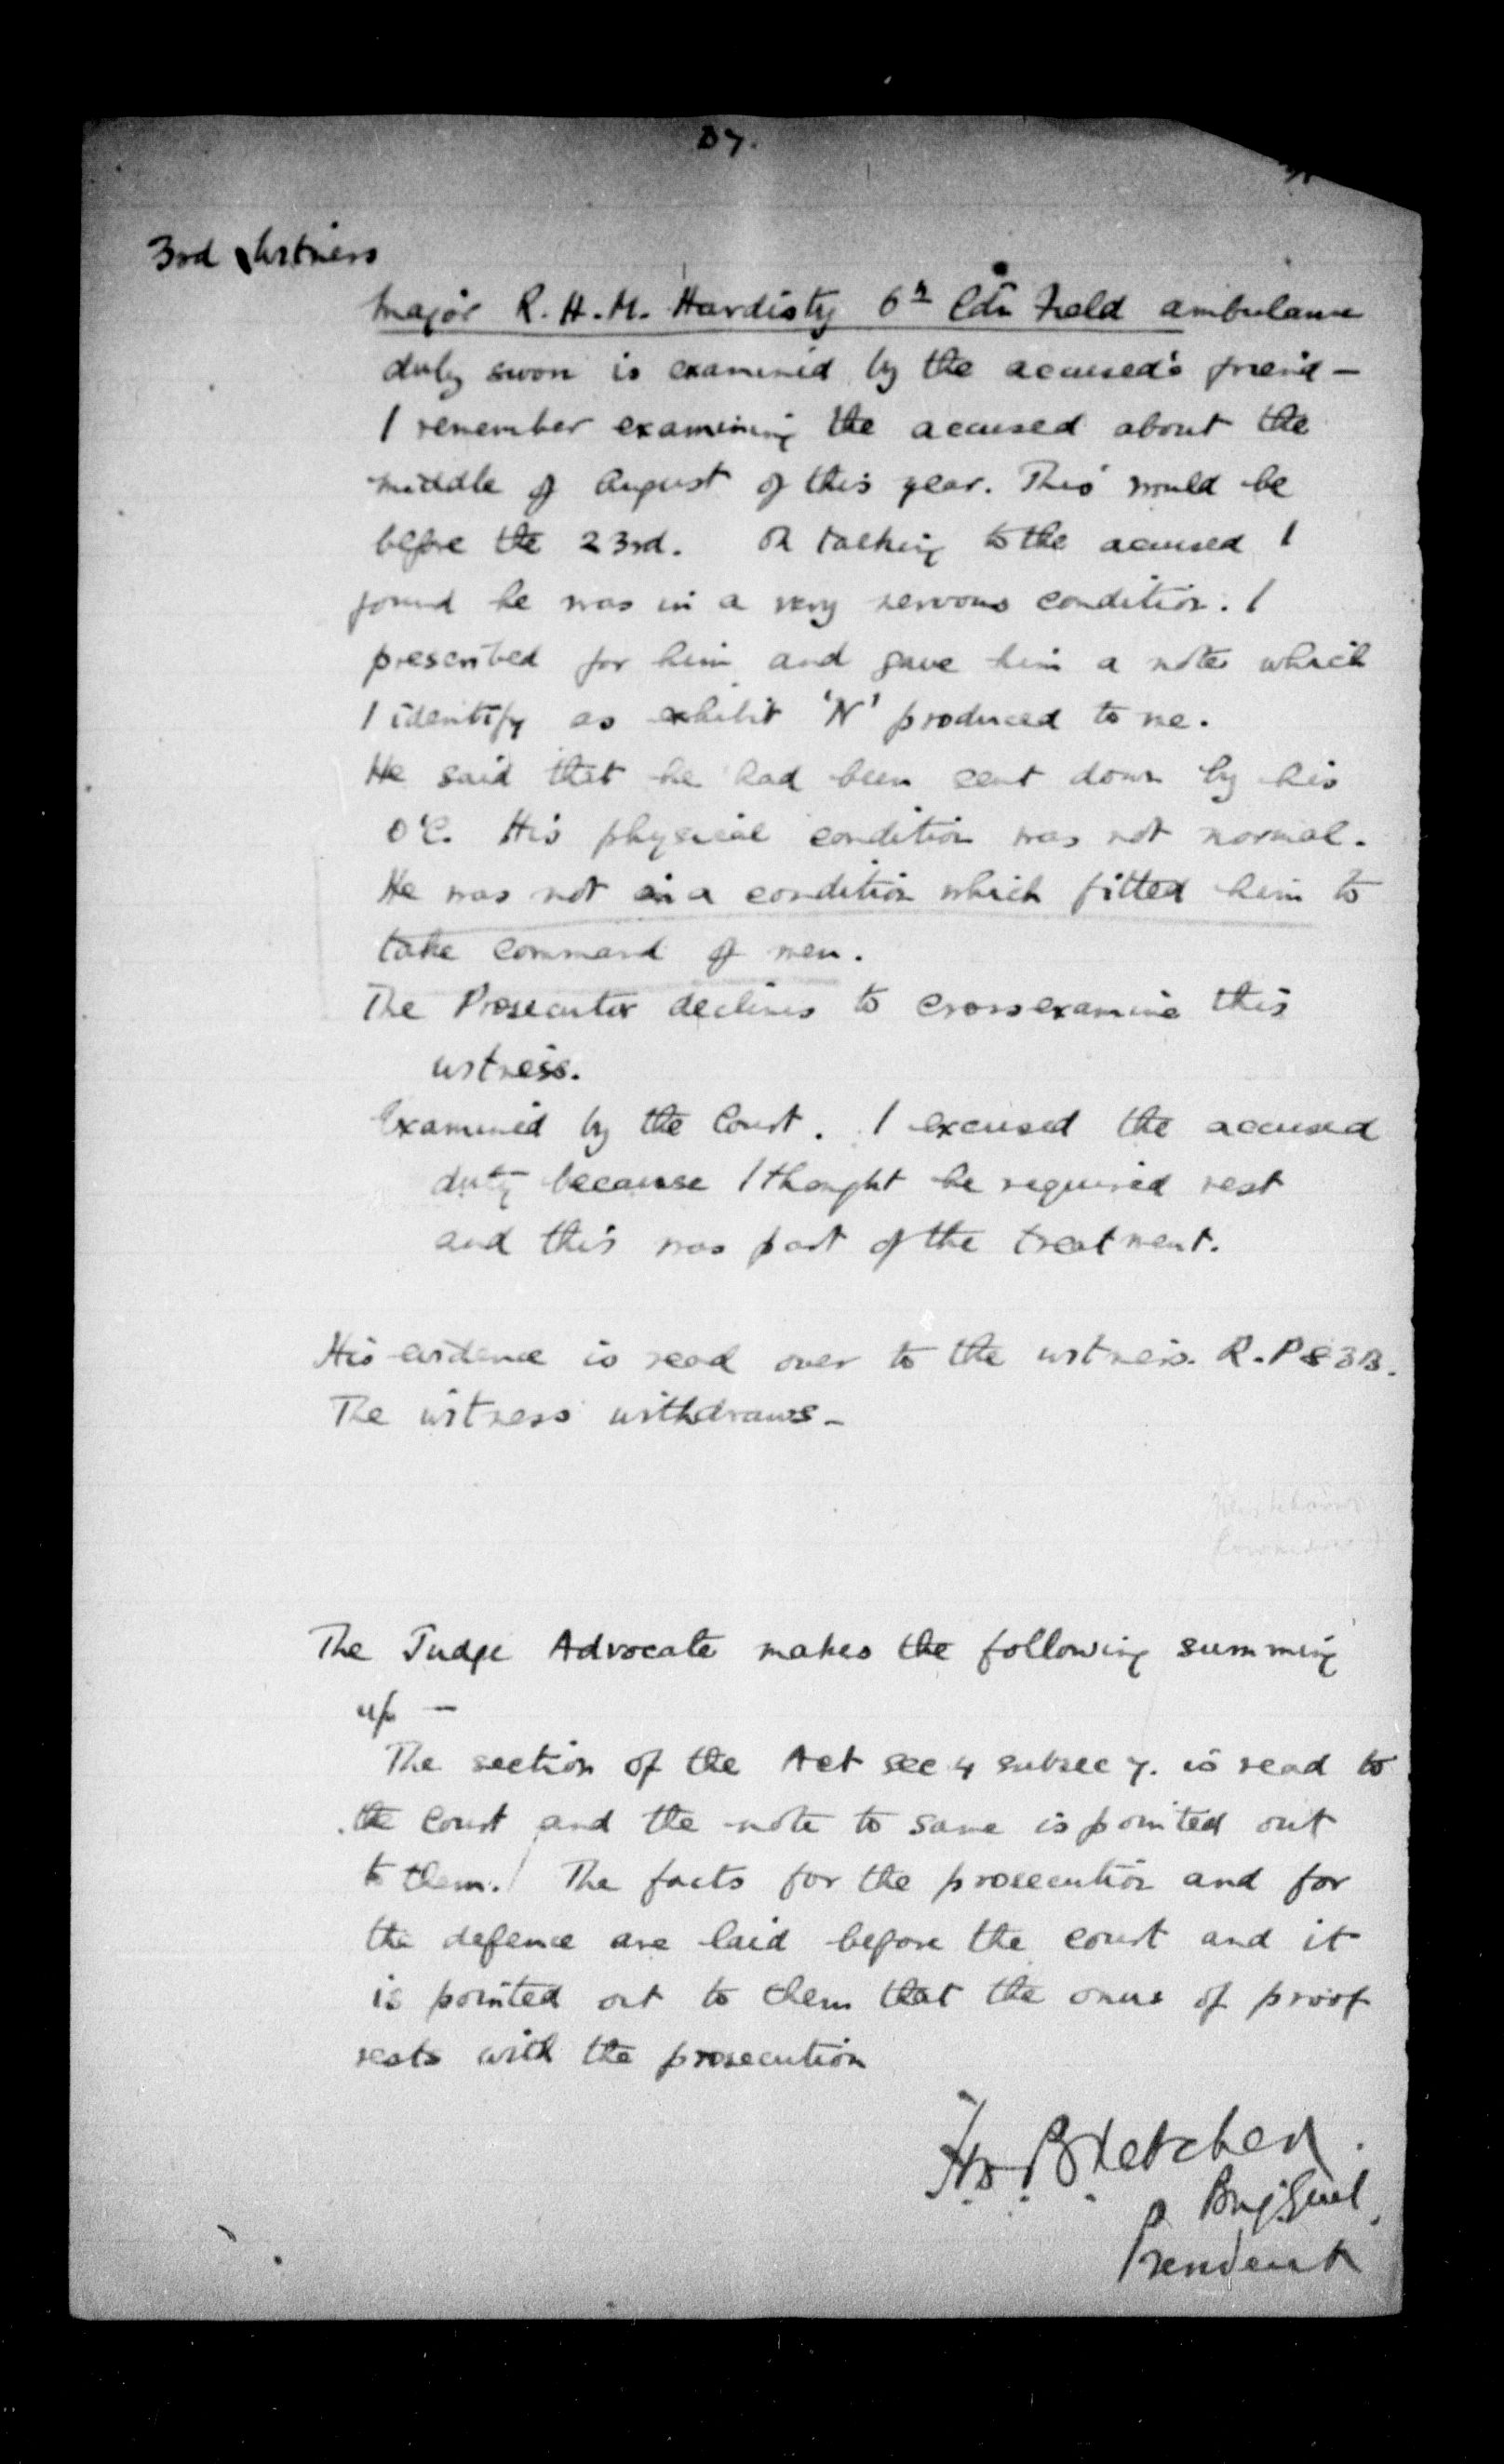 D7.
3rd Witness
Major R. H. M. Hardisty 6th Cdn Field ambulance
duly sworn is examined by the accused's friend —
I remember examining the accused about the
middle of August of this year. This would be
before the 23rd. On talking to the accused I
found he was in a very nervous condition. I
prescribed for him and gave him a note which
I identify as exhibit 'N' produced to me.
He said that he had been sent down by his
O.C. His physical condition was not normal.
He was not in a condition which fitted him to
take command of men.
The Prosecutor declines to cross examine this
witness.
Examined by the Court. I excused the accused
duty because I thought he required rest
and this was part of the treatment.
His evidence is read over to the witness. R.P 83B.
The witness withdraws —
The Judge Advocate makes the following summing
up —
The section of the Act sec 4 subsec 7. is read to
the court and the note to same is pointed out
to them. The facts for the prosecution and for
the defence are laid before the court and it
is pointed out to them that the onus of proof
rests with the prosecution
Ketchen
Brig Genl.
President